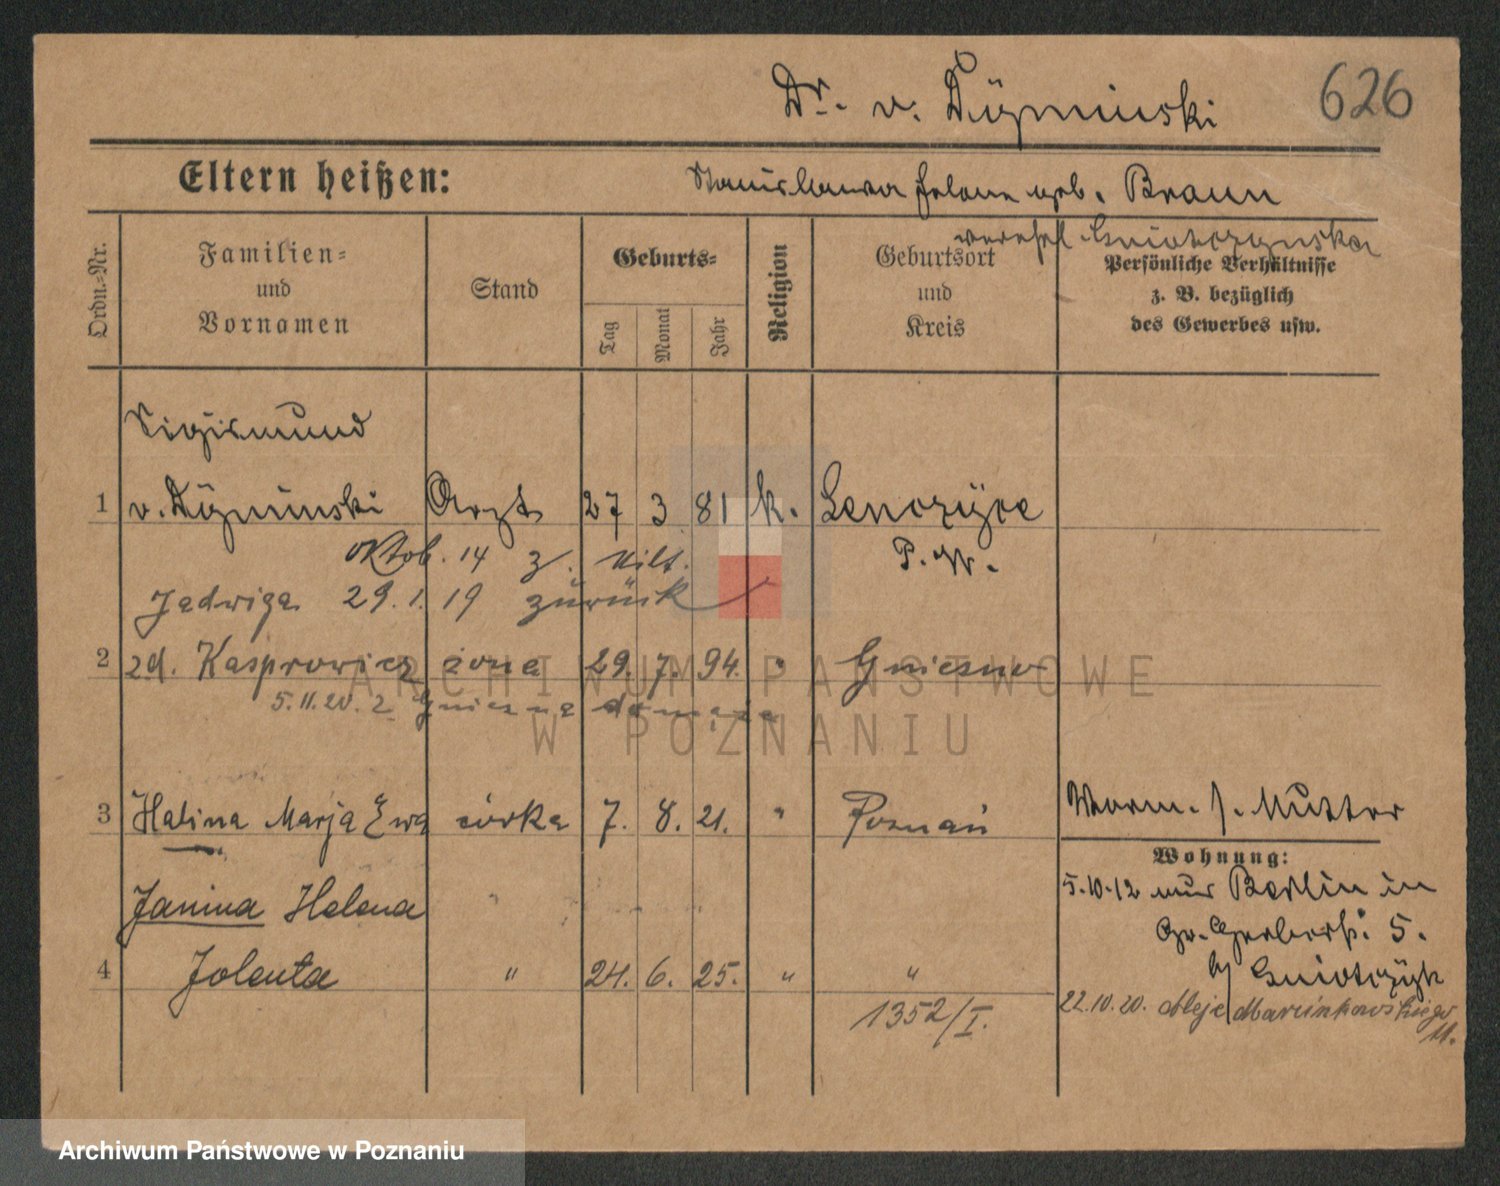 Dr. v. Dÿminski
626
Eltern heißen:
Stanislawa Helene geb. Braun
verehel. Gniotczynska
Ordn.-Nr.
Familien-
und
Vornamen
Stand
Geburts-
Tag
Monat
Jahr
Religion
Geburtsort
und
Kreis
Persönliche Verhältnisse
z. B. bezüglich
des Gewerbes usw.
Sigismund
1 Arzt 27 3 81 k.
Oktob. 14 z. Milt.
P. W.
Jadwiga 29. 1. 19 zurück
2 zd. Kasprowicz żona 29. 7. 94. " Gniezno
5.11.20. z Gniezna
3 Halina Marja Ewa córka 7. 8. 21. " Poznań
Worm. s. Mutter
Wohnung:
Janina Helena "
5.10.12 aus Berlin in
Gr. Gerberstr. 5.
4 Jolenta " 24. 6. 25. " "
b/
22.10.20. Aleje Marcinkowskiego
11.
1352/I.
ARCHIWUM PAŃSTWOWE
W POZNANIU
Archiwum Państwowe w Poznaniu